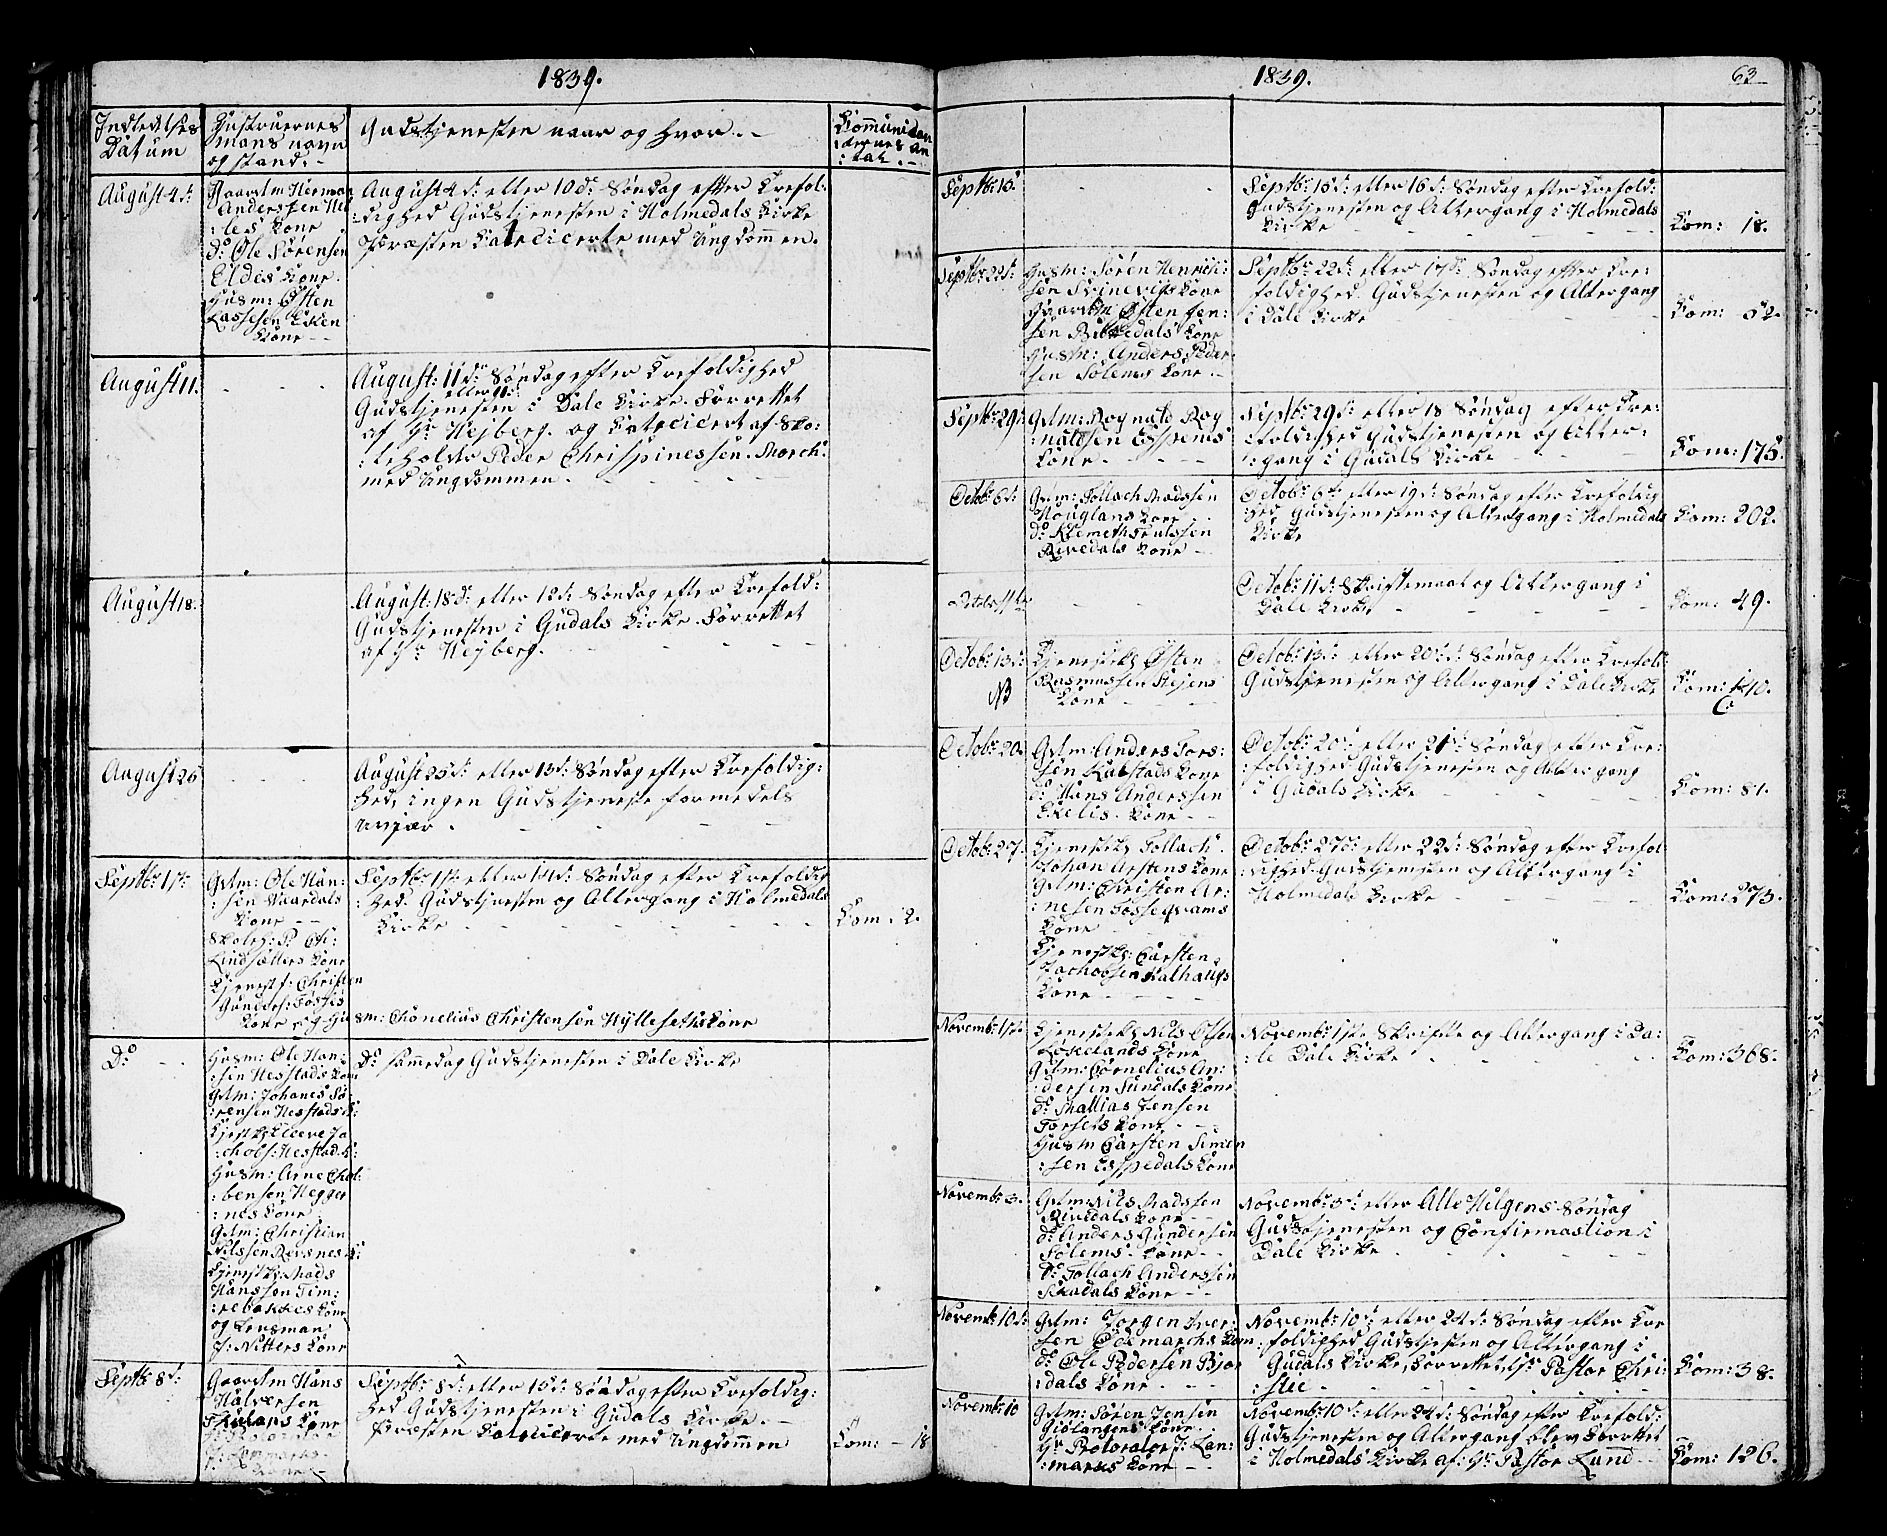 1839.
Indledelses Datum
Hustruernes
Mans navn
og stand. -
Gudstjenesten naar og hvor. -
Communican
dernes an
: tal. -
August 4d:
Gaardm Herman
Anderssen
: les Kone
do Ole Sørensen
Eldes Kone.
Husm: Østen
Lassesen Eken
Kone - -
August 4d: eller 10de Søndag efter Trefol:
:dighed Gudstjenesten i Holmedals Kirke
Præsten Catecicerte med Ungdommen.
August 11.
- - -
August: 11de Søndag efter Trefoldighed
eller 11d:
Gudstjenesten i Dale Kirke. Forrettet
af Hr Heiberg. og Catecicert af Sko:
:leholder Peder Chrispinessen. Morch:
med Ungdommen. - - - -
August 18.
August: 18d: eller 12d: Søndag efter Trefold:
Gudstjenesten i Gudals Kirke. Forrettet
af Hr Heyberg. - - - -
August 25
- - -
August 25d: eller 13d: Søndag efter Trefoldig:
hed, ingen Gudstjeneste formedels
Uvejær. - - - -
Septbr 1ste
Grdm: Ole Han:
:sen Haardals
Kone - -
Skoleh: P. Ch:
Lindsætters Kone
Tjenestf: Christen
Gunders: Tøstis
Kone og Husm: Chonelius Christensen Hylleseths Kone
Septbr 1ste eller 14d: Søndag efter Trefoldig
:hed. Gudstjenesten og Altergang i Holmedals
Kirke - - - - -
Kom: 2.
Do - -
Husm: Ole Han:
:sen Nesstads Kone
Grdm: Johanes Sø
:rensen Nesstads K:
Tjestk: Kleeve Ja
:chobs: Nesstad K:
Husm: Arne Chol
:bensen Hegger
:nes Kone.
Grdm: Christian
Nilssen Revsnes K:
Tjenestk: Mads
Hanssen Tim:
:rebakkes Kone
og Lensman
J: Nitters Kone
Do sammedag Gudstjenesten i Dale Kirke
Septbr 8d:
Gaardm Hans
Halversen
Kone
Septbr 8d: eller 15d: Søndag efter Trefoldig:
hed Gudstjenesten i Gudals Kirke. -
Præsten Catecicerte med Ungdommen
Kom: - 18
1839.
63
Septbr 15d
- -
Septbr 15d: eller 16d: Søndag efter Trefold:
Gudstjenesten og Altergang i Holmedals
Kirke - - - -
Kom: 18.
Septbr 22d:
Husm: Søren Henrich:
sen Svinevigs Kone
Gaardm Østen Jen:
sen Kone
Husm: Anders Peder:
sen Solems Kone. -
Septbr 22d: eller 17d: Søndag efter Tre:
foldighed. Gudstjenesten og Altergang
i Dale Kirke - - -
Kom: 52.
Septbr 29d
Grdm: Rognald Rog
:naldsen Espenes
Kone. - - - -
Septbr 29d: eller 18 Søndag efter Tre:
:foldighed Gudstjenesten og Alter:
:gang i Gudals Kirke - - -
Kom: 175.
Octobr 6d:
Grdm: Tollach Madssen
Houglans Kone - -
do Klemeth Trulssen
Rivedals Kone -
Octobr 6d: eller 19d: Søndag efter Trefoldig
:hed Gudstjenesten og Altergang i Holmedals
Kirke
Kom: 202.
Octobr 11te
- -
Octobr 11d: Skriftemaal og Altergang i
Dale Kirke - - - -
Kom: 49.
Octobr 13d:
NB
Tjenestk: Østen
Rasmussen Stejens
Kone - - -
Octobr 13d: eller 20d: Søndag efter Trefold:
Gudstjenesten og Altergang i Dale Kirke
Kom: 140.
Octobr 20.
Grdm: Anders Tors:
:sen Kalstads Kone
do: Hans Anderssen
Ekelis. Kone - -
Octobr 20d: eller 21d: Søndag efter Tre:
:foldighed Gudstjenesten og Altergang
i Gudals Kirke - - -
Kom: 81.
Octobr 27.
Tjenestk: Tollach.
Johan Arstens Kone
Grdm: Christen Ar:
:nesen Fossegrams
Kone - - -
Tjenestk: Carsten
Jachobsen Dalhaugs
Kone - - -
Octobr 27d: eller 22d: Søndag efter Trefol
:dighed Gudstjenesten og Altergang i
Holmedals Kirke - - -
Kom: 273.
Novembr 1ste
Tjenestk: Nils Olsen
Løkelands Kone
Grdm: Cornelius An:
:dersen Sundals Kone
do Mathias Jensen
Torsets Kone - -
Husm Carsten Simon
:sen Espedals Kone
Novembr 1ste Skrifte og Altergang i Da:
:le Dale Kirke - - -
Kom: 368.
Novembr 3.
Grdm: Nils Madssen
Rivedals Kone - -
do Anders Gundersen
Solems. Kone - -
do Tollach Anderssen
Skadals Kone - -
Novembr 3d: eller Alle Helgens Søndag
Gudstjenesten og Confirmastion i
Dale Kirke - - -
Novembr 10d:
Grdm: Jorgen Iver:
:sen Edemarchs Kone
do Ole Pedersen Bjor
:dals Kone - - -
Novembr 10d: eller 24d: Søndag efter Tre
:foldighed Gudstjesten og Altergang i
Gudals Kirke, Forrettet Hr Pastor Chri:
:stie - - - -
Kom: 38.
Novembr 10
Grdm: Søren Jensen
Gislangens Kone.
Hr Prokurator J: Lan:
:marks Kone - -
Novembr 10d: eller 24d: Søndag efter Trefold:
Gudstjenesten og Altergang blev forrettet
i Holmedals Kirke af: Hr Pastor Lund -
Kom: 126.